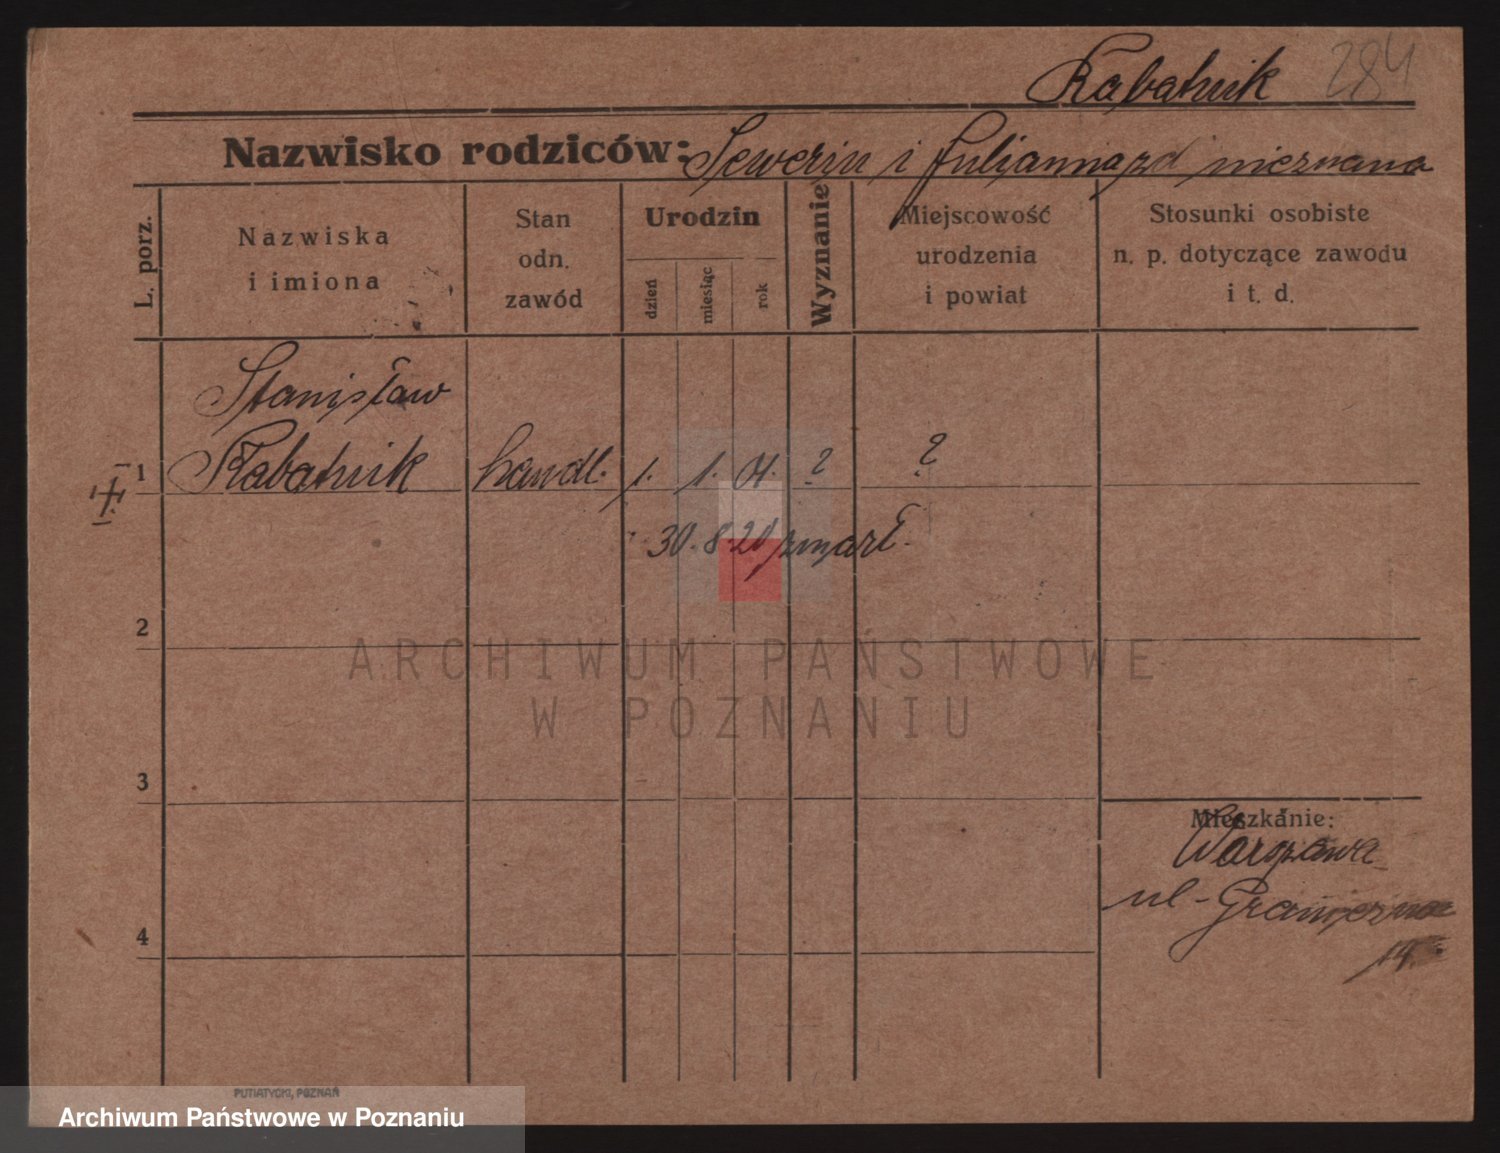 Rabatnik 284
Nazwisko rodziców: Seweryn i Julijanna zd nieznana
L. porz.
Nazwiska
i imiona
Stan
odn.
zawód
Urodzin
dzień
miesiąc
rok
Wyznanie
Miejscowość
urodzenia
i powiat
Stosunki osobiste
n. p. dotyczące zawodu
i t. d.
Stanisław
1 Rabatnik handl. 1. 1. 01. ? ?
30. 8. 20 zmarł.
2
3
4
Mieszkanie:
Warszawa
ul - Graniczna
14.
PUTIATYCKI, POZNAŃ
ARCHIWUM PAŃSTWOWE
W POZNANIU
Archiwum Państwowe w Poznaniu